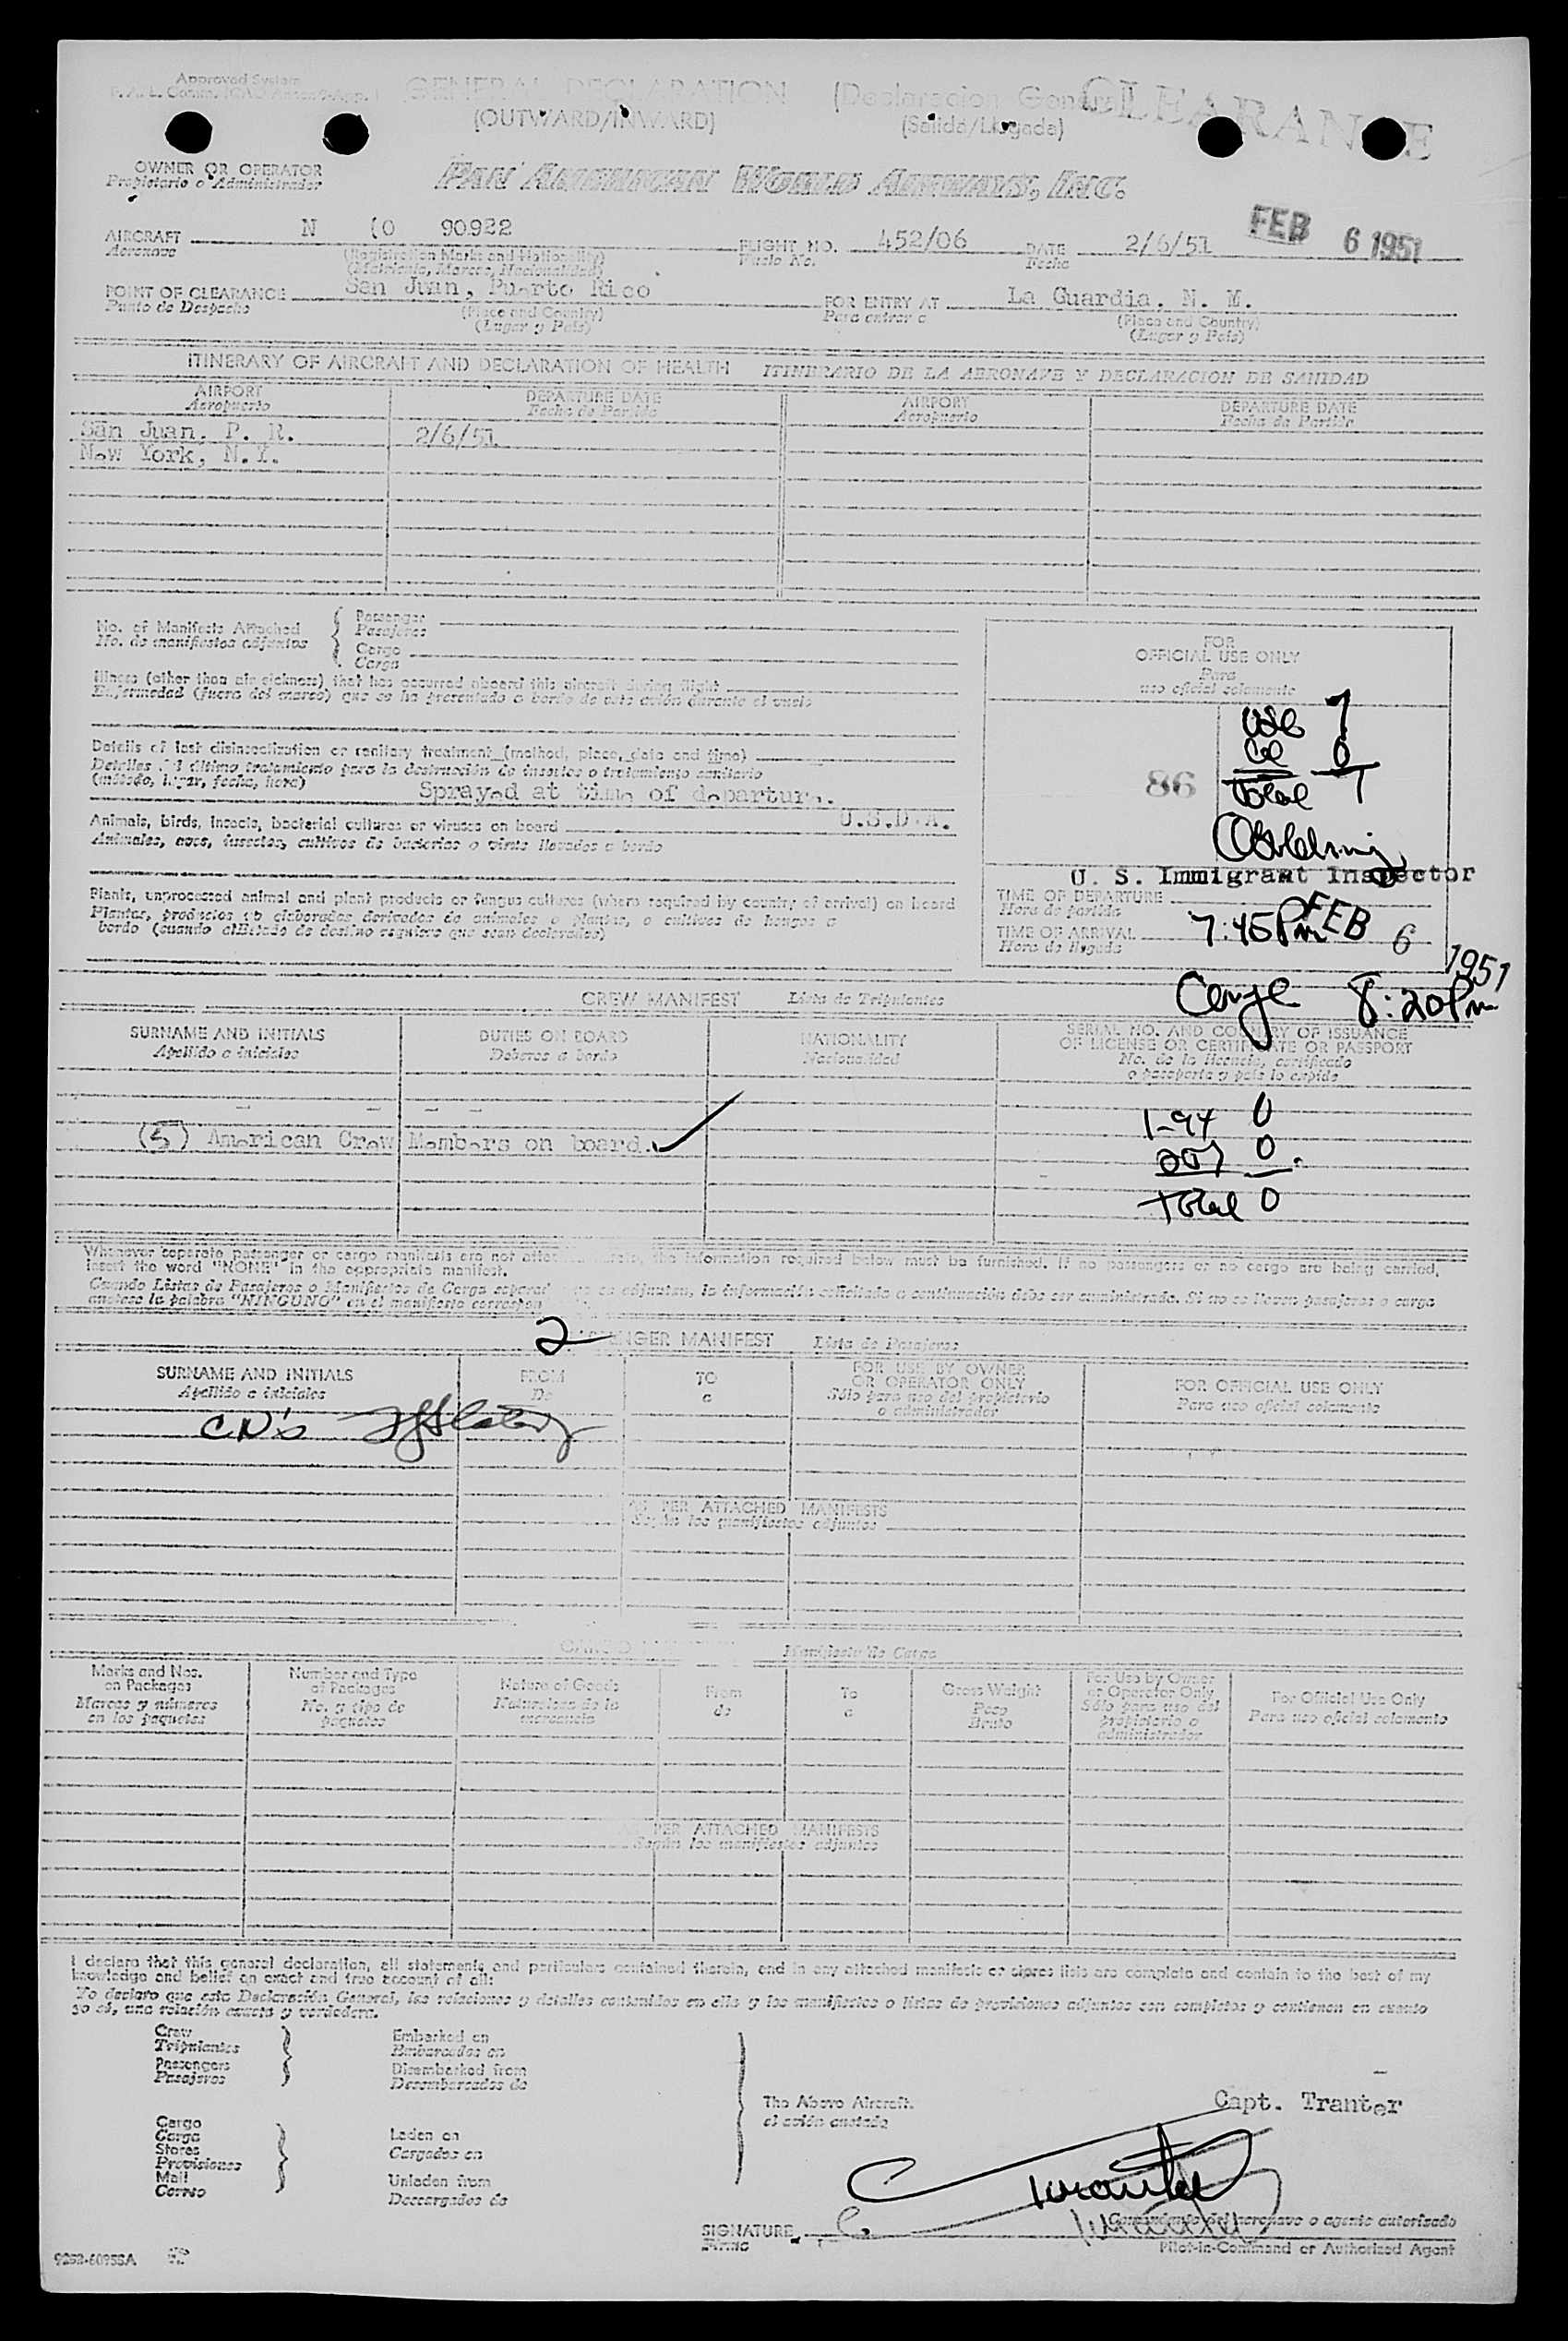 Approved System
GENERAL DECLARATION (Declaracion General)
CLEARANCE
(OUTWARD/INWARD) (Salida/Llegada)
OWNER OR OPERATOR
Propietario o Administrador
PAN AMERICAN WORLD AIRWAYS, INC.
AIRCRAFT N 90922 FLIGHT NO. 452/06 DATE 2/6/51
FEB 6 1951
Aeronave (Registration Marks and Nationality) Vuelo No. Fecha
(Matricula, Marcas, Nacionalidad)
POINT OF CLEARANCE San Juan, Puerto Rico FOR ENTRY AT La Guardia, N. Y.
Punto de Despacho (Place and Country) Para entrar a (Place and Country)
(Lugar y Pais) (Lugar y Pais)
ITINERARY OF AIRCRAFT AND DECLARATION OF HEALTH ITINERARIO DE LA AERONAVE Y DECLARACION DE SANIDAD
AIRPORT DEPARTURE DATE AIRPORT DEPARTURE DATE
Aeropuerto Fecha de Partida Aeropuerto Fecha de Partida
San Juan, P. R. 2/6/51
New York, N.Y.
No. of Manifests Attached Passenger
No. de manifiestos adjuntos Pasajeros
Cargo
Carga
Illness (other than air sickness) that has occurred aboard this aircraft during flight
Enfermedad (fuera del mareo) que se ha presentado a bordo de este avión durante el vuelo
Details of last disinsectization or sanitary treatment (method, place, date and time)
Detalles del último tratamiento para la destrucción de insectos o tratamiento sanitario
(método, lugar, fecha, hora) Sprayed at time of departure.
U.S.D.A.
Animals, birds, insects, bacterial cultures or viruses on board
Animales, aves, insectos, cultivos de bacterias o virus llevados a bordo
Plants, unprocessed animal and plant products or fungus cultures (where required by country of arrival) on board
Plantas, productos no elaborados derivados de animales o plantas, o cultivos de hongos a
bordo (cuando el Estado de destino requiera que sean declarados)
FOR
OFFICIAL USE ONLY
Para
uso oficial solamente
USC 7
0
86
Total 7
U. S. Immigrant Inspector
TIME OF DEPARTURE
Hora de partida
TIME OF ARRIVAL 7:45 Pm FEB 6 1951
Hora de llegada
8:20 Pm
CREW MANIFEST Lista de Tripulantes
SURNAME AND INITIALS DUTIES ON BOARD NATIONALITY SERIAL NO. AND COUNTRY OF ISSUANCE
Apellido e iniciales Deberes a bordo Nacionalidad OF LICENSE OR CERTIFICATE OR PASSPORT
No. de la licencia, certificado
o pasaporte y pais lo expide
(5) American Crew Members on board.
1-94 0
257 0
Total 0
Whenever separate passenger or cargo manifests are not the information required below must be furnished. If no passengers or no cargo are being carried,
insert the word "NONE" in the appropriate manifest.
Cuando Listas de Pasajeros o Manifiestos de Carga adjuntan, la información solicitada a continuación debe ser suministrada. Si no se llevan pasajeros o carga
anotese la palabra "NINGUNO" en el manifiesto
2 MANIFEST Lista de Pasajeros
SURNAME AND INITIALS FROM TO FOR USE BY OWNER FOR OFFICIAL USE ONLY
Apellido e iniciales De a OR OPERATOR ONLY Para uso oficial solamente
Sólo para uso del propietario
o administrador
CN's
AS PER ATTACHED MANIFESTS
Según los manifiestos adjuntos
CARGO Manifiesto de Carga
Marks and Nos. Number and Type Nature of Goods From To Gross Weight For Use by Owner For Official Use Only
on Packages of Packages Naturaleza de la de a Peso or Operator Only Para uso oficial solamente
Marcas y números No. y tipo de mercancia Bruto Sólo para uso del
en los paquetes paquetes propietario o
administrador
AS PER ATTACHED MANIFESTS
Según los manifiestos adjuntos
I declare that this general declaration, all statements and particulars contained therein, and in any attached manifests or stores lists are complete and contain to the best of my
knowledge and belief an exact and true account of all:
Yo declaro que esta Declaración General, las relaciones y detalles contenidos en ella y los manifiestos o listas de provisiones adjuntos son completos y contienen en cuanto
yo sé, una relación exacta y verdadera.
Crew Embarked on
Tripulantes Embarcados en
Passengers Disembarked from
Pasajeros Desembarcados de
The Above Aircraft.
el avión anotado
Capt. Tranter
Cargo
Carga Laden on
Stores Cargados en
Provisiones
Mail Unladen from
Correo Descargados de
C. Tranter
SIGNATURE
Firma
Comandante del aeronave o agente autorizado
Pilot-in-Command or Authorized Agent